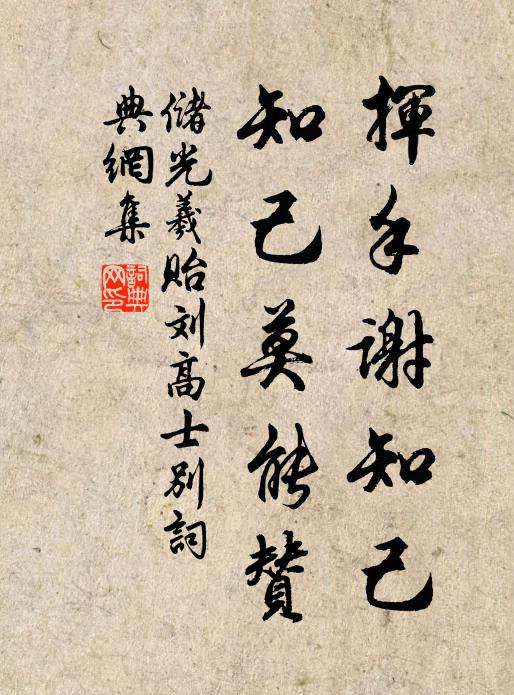 揮手謝知己
知己莫能贊
儲光羲貽刘高士別詞
典網集
詞典
网印